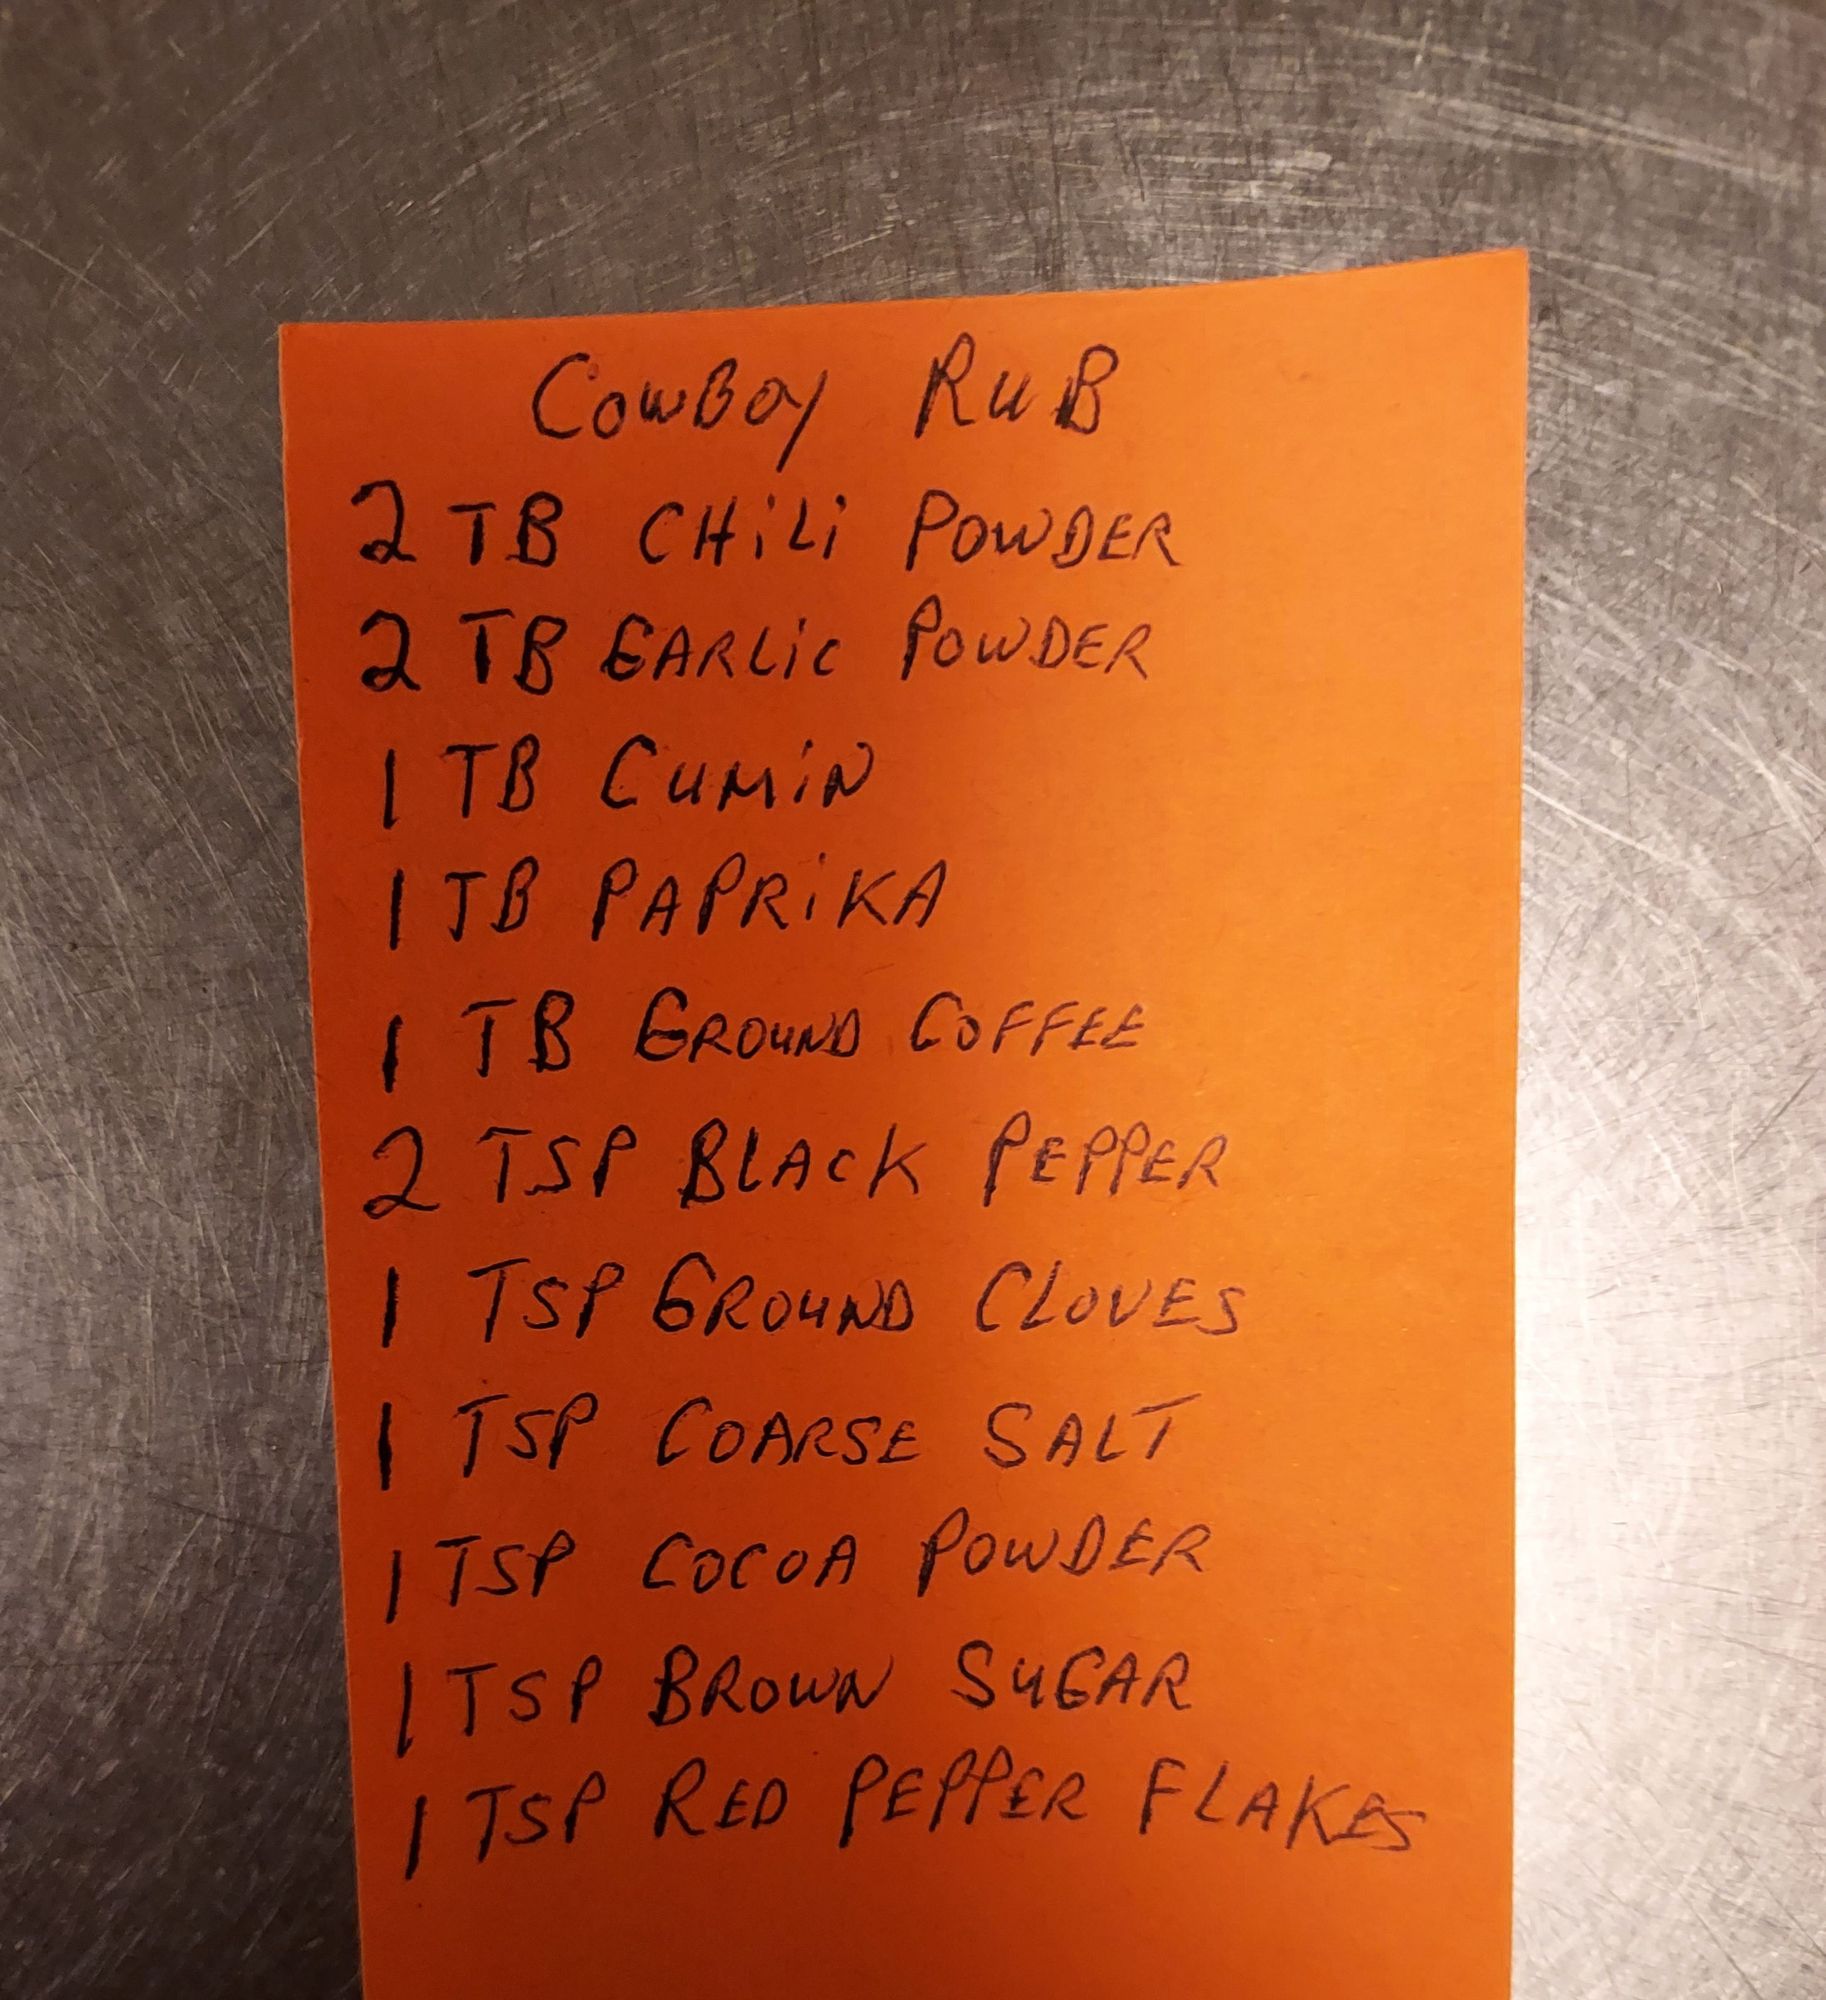 CowBoy RuB
2 TB CHiLi POWDER
2 TB GARLiC POWDER
1 TB CuMiN
1 TB PAPRiKA
1 TB GROuND COFFEE
2 TSP BLACK PEPPER
1 TSP GROuND CLOVES
1 TSP COARSE SALT
1 TSP COCOA POWDER
1 TSP BROWN SuGAR
1 TSP RED PEPPER FLAKES